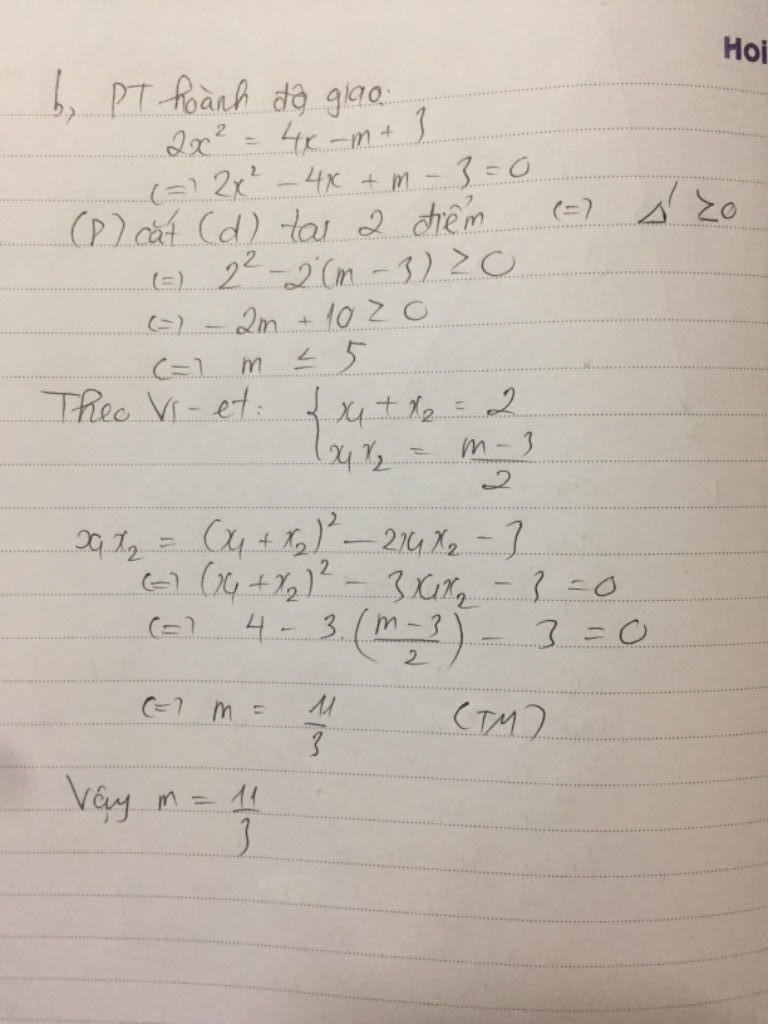 Hoi
b, PT hoành độ giao:
2x² = 4x - m + 3
<=> 2x² - 4x + m - 3 = 0
(P) cắt (d) tại 2 điểm <=> Δ' ≥ 0
<=> 2² - 2(m - 3) ≥ 0
<=> - 2m + 10 ≥ 0
<=> m ≤ 5
Theo Vi-et: { x₁ + x₂ = 2
x₁x₂ = (m - 3)/2
x₁x₂ = (x₁ + x₂)² - 2x₁x₂ - 3
<=> (x₁ + x₂)² - 3x₁x₂ - 3 = 0
<=> 4 - 3.((m - 3)/2) - 3 = 0
<=> m = 11/3 (TM)
Vậy m = 11/3